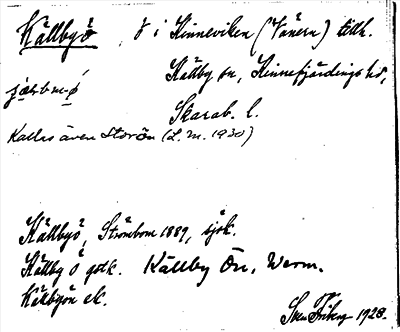 Källbyö, ö i Kinneviken (Vänern) tillh.
Källby sn, Kinnefjärdings hd,
Skarab. l.
Kallas även Storön (L.M. 1930)
Källbyö, Strömbom 1889, sjök.
Källby Ö gstk. Källby Ön, Werm.
Källbyön ek.
1928.